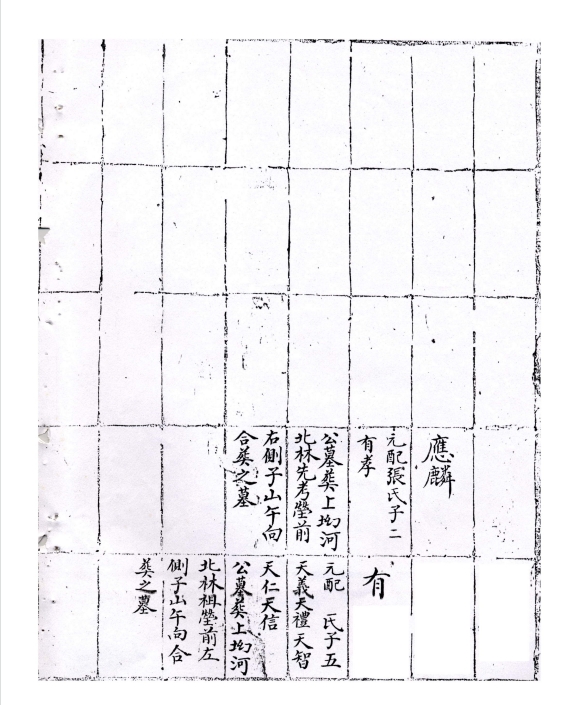 應麟
元配張氏子二
有孝
公墓葬上坸河
北林先考塋前
右側子山午向
合葬之墓
有
元配　氏子五
天義天禮天智
天仁天信
公墓葬上坸河
北林祖塋前左
側子山午向合
葬之墓